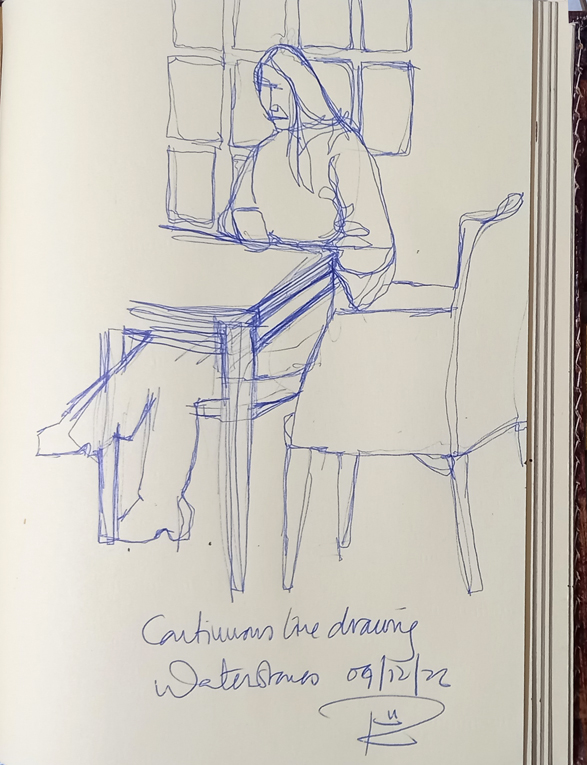 Continuous line drawing
Waterstones 09/12/22